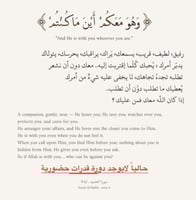 ﴿ وَهُوَ مَعَكُمْ أَيْنَ مَا كُنْتُمْ ﴾
"And He is with you wherever you are."
رفيق، لطيف، قريب، يسمعك، يراك، يراقبك، يحرسك، يتولاك
يدبّر أمرك، يُحبك كُلّما إقتربت إليه. معك دون أن تشعر
تطلبه تجدهُ تجاهك، لا يخفى عليه شيء من أمرك
يُعطيك ما تطلب دون أن تسأله.
إذا كان اللّٰه معك فمن عليك ؟
A companion, gentle, near — He hears you, He sees you, watches over you,
protects you, and cares for you.
He arranges your affairs, and He loves you the closer you come to Him.
He is with you even when you do not feel it.
When you call upon Him, you find Him before you; nothing about you is
hidden from Him. He gives you even before you ask.
So if Allah is with you... who can be against you?
حالياً لايوجد دورة قدرات حضورية
سورة الحديد